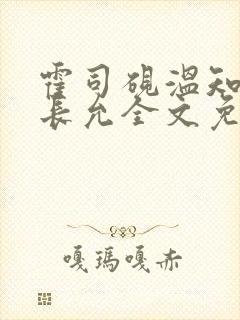 霍司砚温知
表允全文免
嘎玛嘎赤